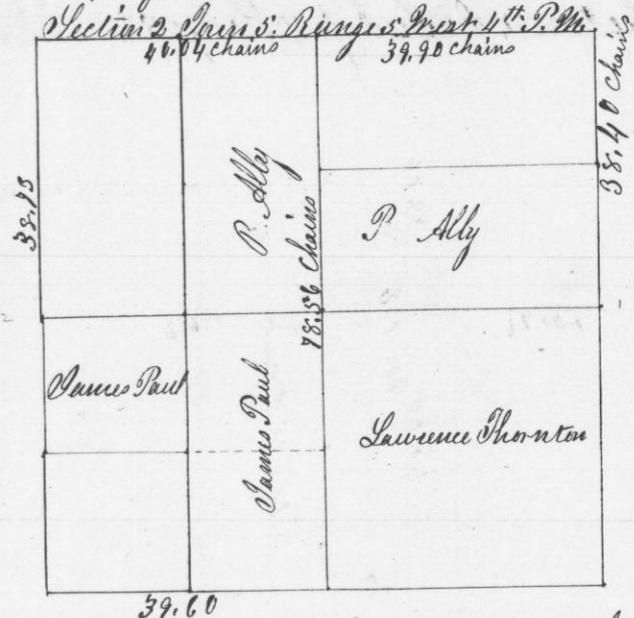 Section 2 Town 5. Range 5 West 4th P.M.
40.04 chains
39.90 chains
38.40 chains
38.75
P. Ally
78.56 Chains
P Ally
James Paul
James Paul
Lawrence Thornton
39.60